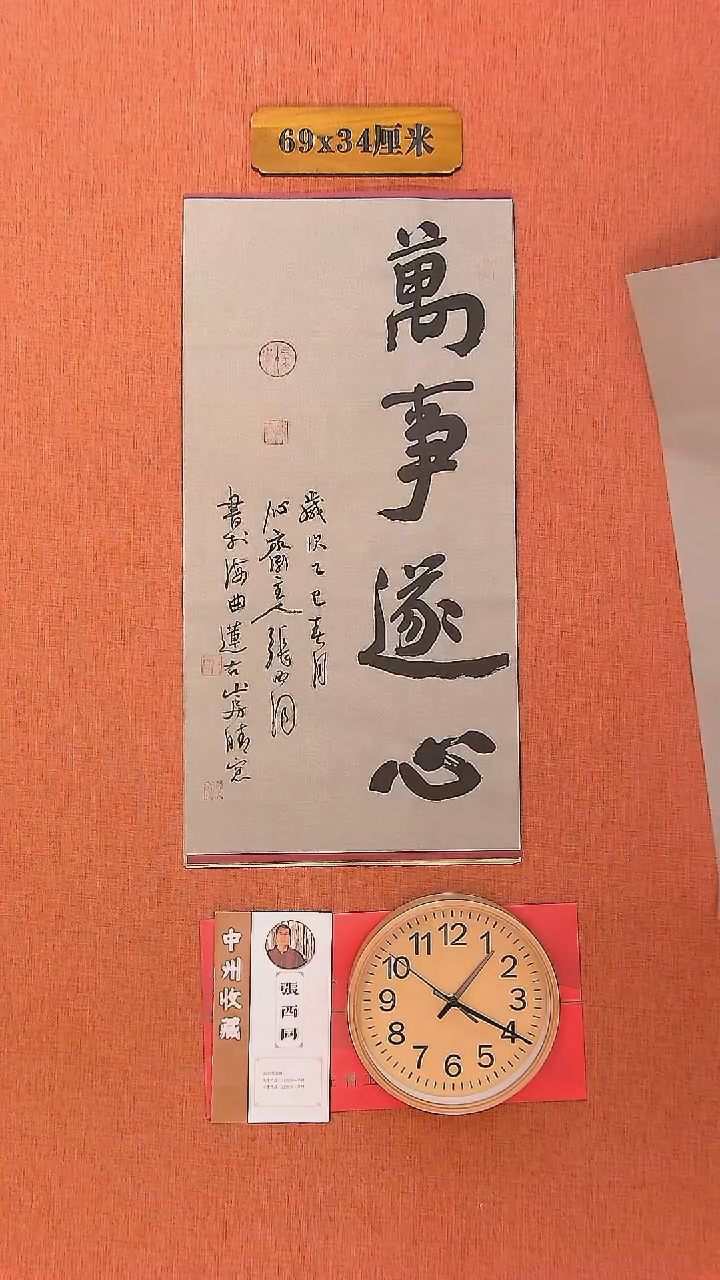 69x34厘米
萬事遂心
歲次乙巳春月
心齋主人張西同
書於海曲蓮右山房晴窓
中州收藏
張西同
12
1
2
3
4
5
6
7
8
9
10
11